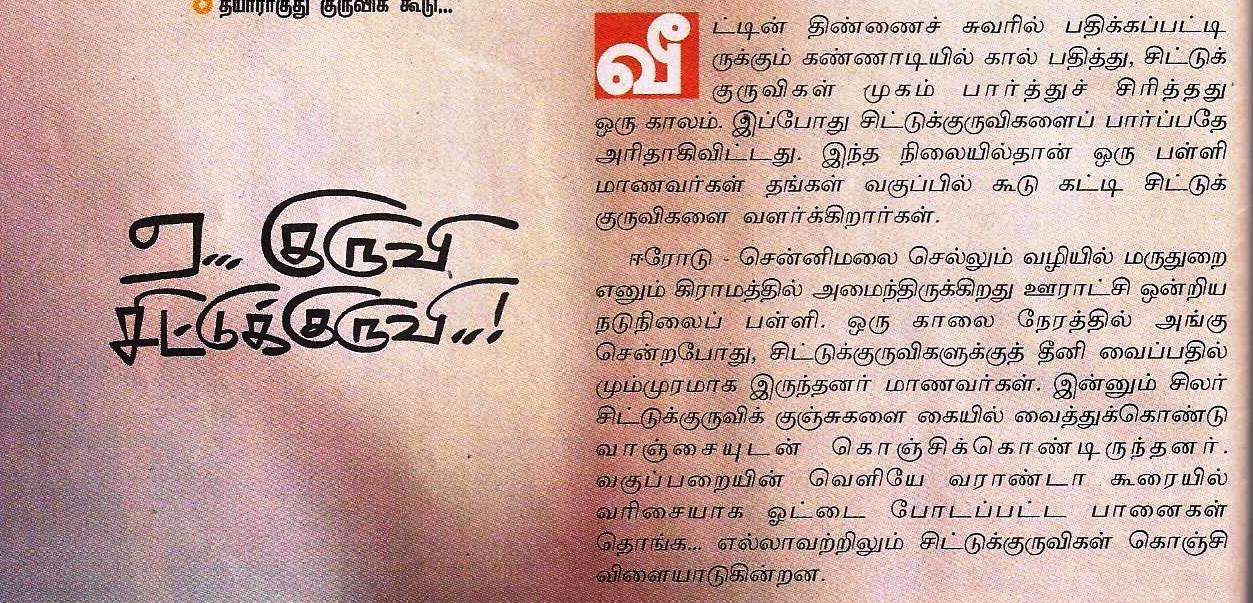 தயாராகுது குருவிக் கூடு...
ஏ... குருவி
சிட்டுக்குருவி...!
வீட்டின் திண்ணைச் சுவரில் பதிக்கப்பட்டி
ருக்கும் கண்ணாடியில் கால் பதித்து, சிட்டுக்
குருவிகள் முகம் பார்த்துச் சிரித்தது
ஒரு காலம். இப்போது சிட்டுக்குருவிகளைப் பார்ப்பதே
அரிதாகிவிட்டது. இந்த நிலையில்தான் ஒரு பள்ளி
மாணவர்கள் தங்கள் வகுப்பில் கூடு கட்டி சிட்டுக்
குருவிகளை வளர்க்கிறார்கள்.
ஈரோடு - சென்னிமலை செல்லும் வழியில் மருதுறை
எனும் கிராமத்தில் அமைந்திருக்கிறது ஊராட்சி ஒன்றிய
நடுநிலைப் பள்ளி. ஒரு காலை நேரத்தில் அங்கு
சென்றபோது, சிட்டுக்குருவிகளுக்குத் தீனி வைப்பதில்
மும்முரமாக இருந்தனர் மாணவர்கள். இன்னும் சிலர்
சிட்டுக்குருவிக் குஞ்சுகளை கையில் வைத்துக்கொண்டு
வாஞ்சையுடன் கொஞ்சிக்கொண்டிருந்தனர்.
வகுப்பறையின் வெளியே வராண்டா கூரையில்
வரிசையாக ஓட்டை போடப்பட்ட பானைகள்
தொங்க... எல்லாவற்றிலும் சிட்டுக்குருவிகள் கொஞ்சி
விளையாடுகின்றன.